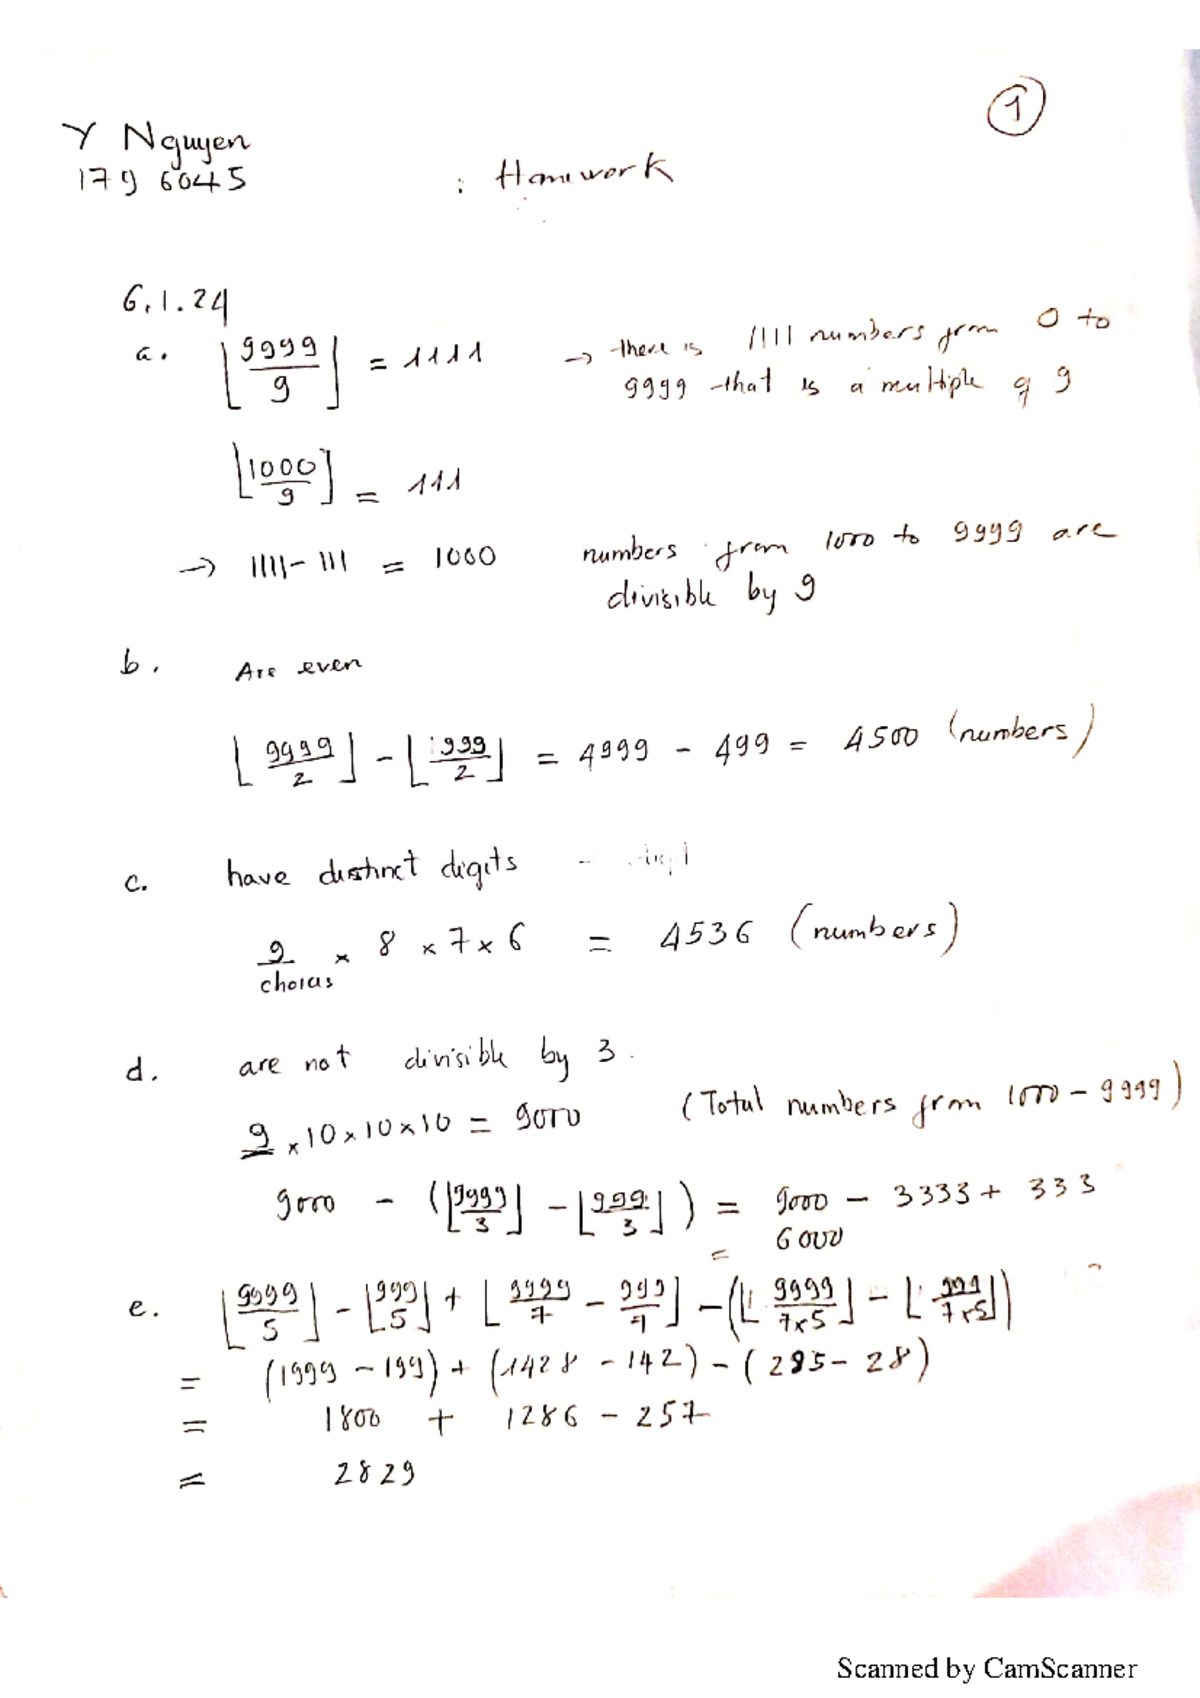 1
Y Nguyen
1796045
: Homework
6.1.24
a. ⌊9999/9⌋ = 1111 → there is 1111 numbers from 0 to
9999 that is a multiple of 9
⌊1000/9⌋ = 111
→ 1111 - 111 = 1000 numbers from 1000 to 9999 are
divisible by 9
b. Are even
⌊9999/2⌋ - ⌊999/2⌋ = 4999 - 499 = 4500 (numbers)
c. have distinct digits
9 × 8 × 7 × 6 = 4536 (numbers)
choices
d. are not divisible by 3.
9 × 10 × 10 × 10 = 9000 (Total numbers from 1000 - 9999)
9000 - (⌊9999/3⌋ - ⌊999/3⌋) = 9000 - 3333 + 333
= 6000
e. ⌊9999/5⌋ - ⌊999/5⌋ + ⌊9999/7 - 999/7⌋ - (⌊9999/7×5⌋ - ⌊999/7×5⌋)
= (1999 - 199) + (1428 - 142) - (285 - 28)
= 1800 + 1286 - 257
= 2829
Scanned by CamScanner